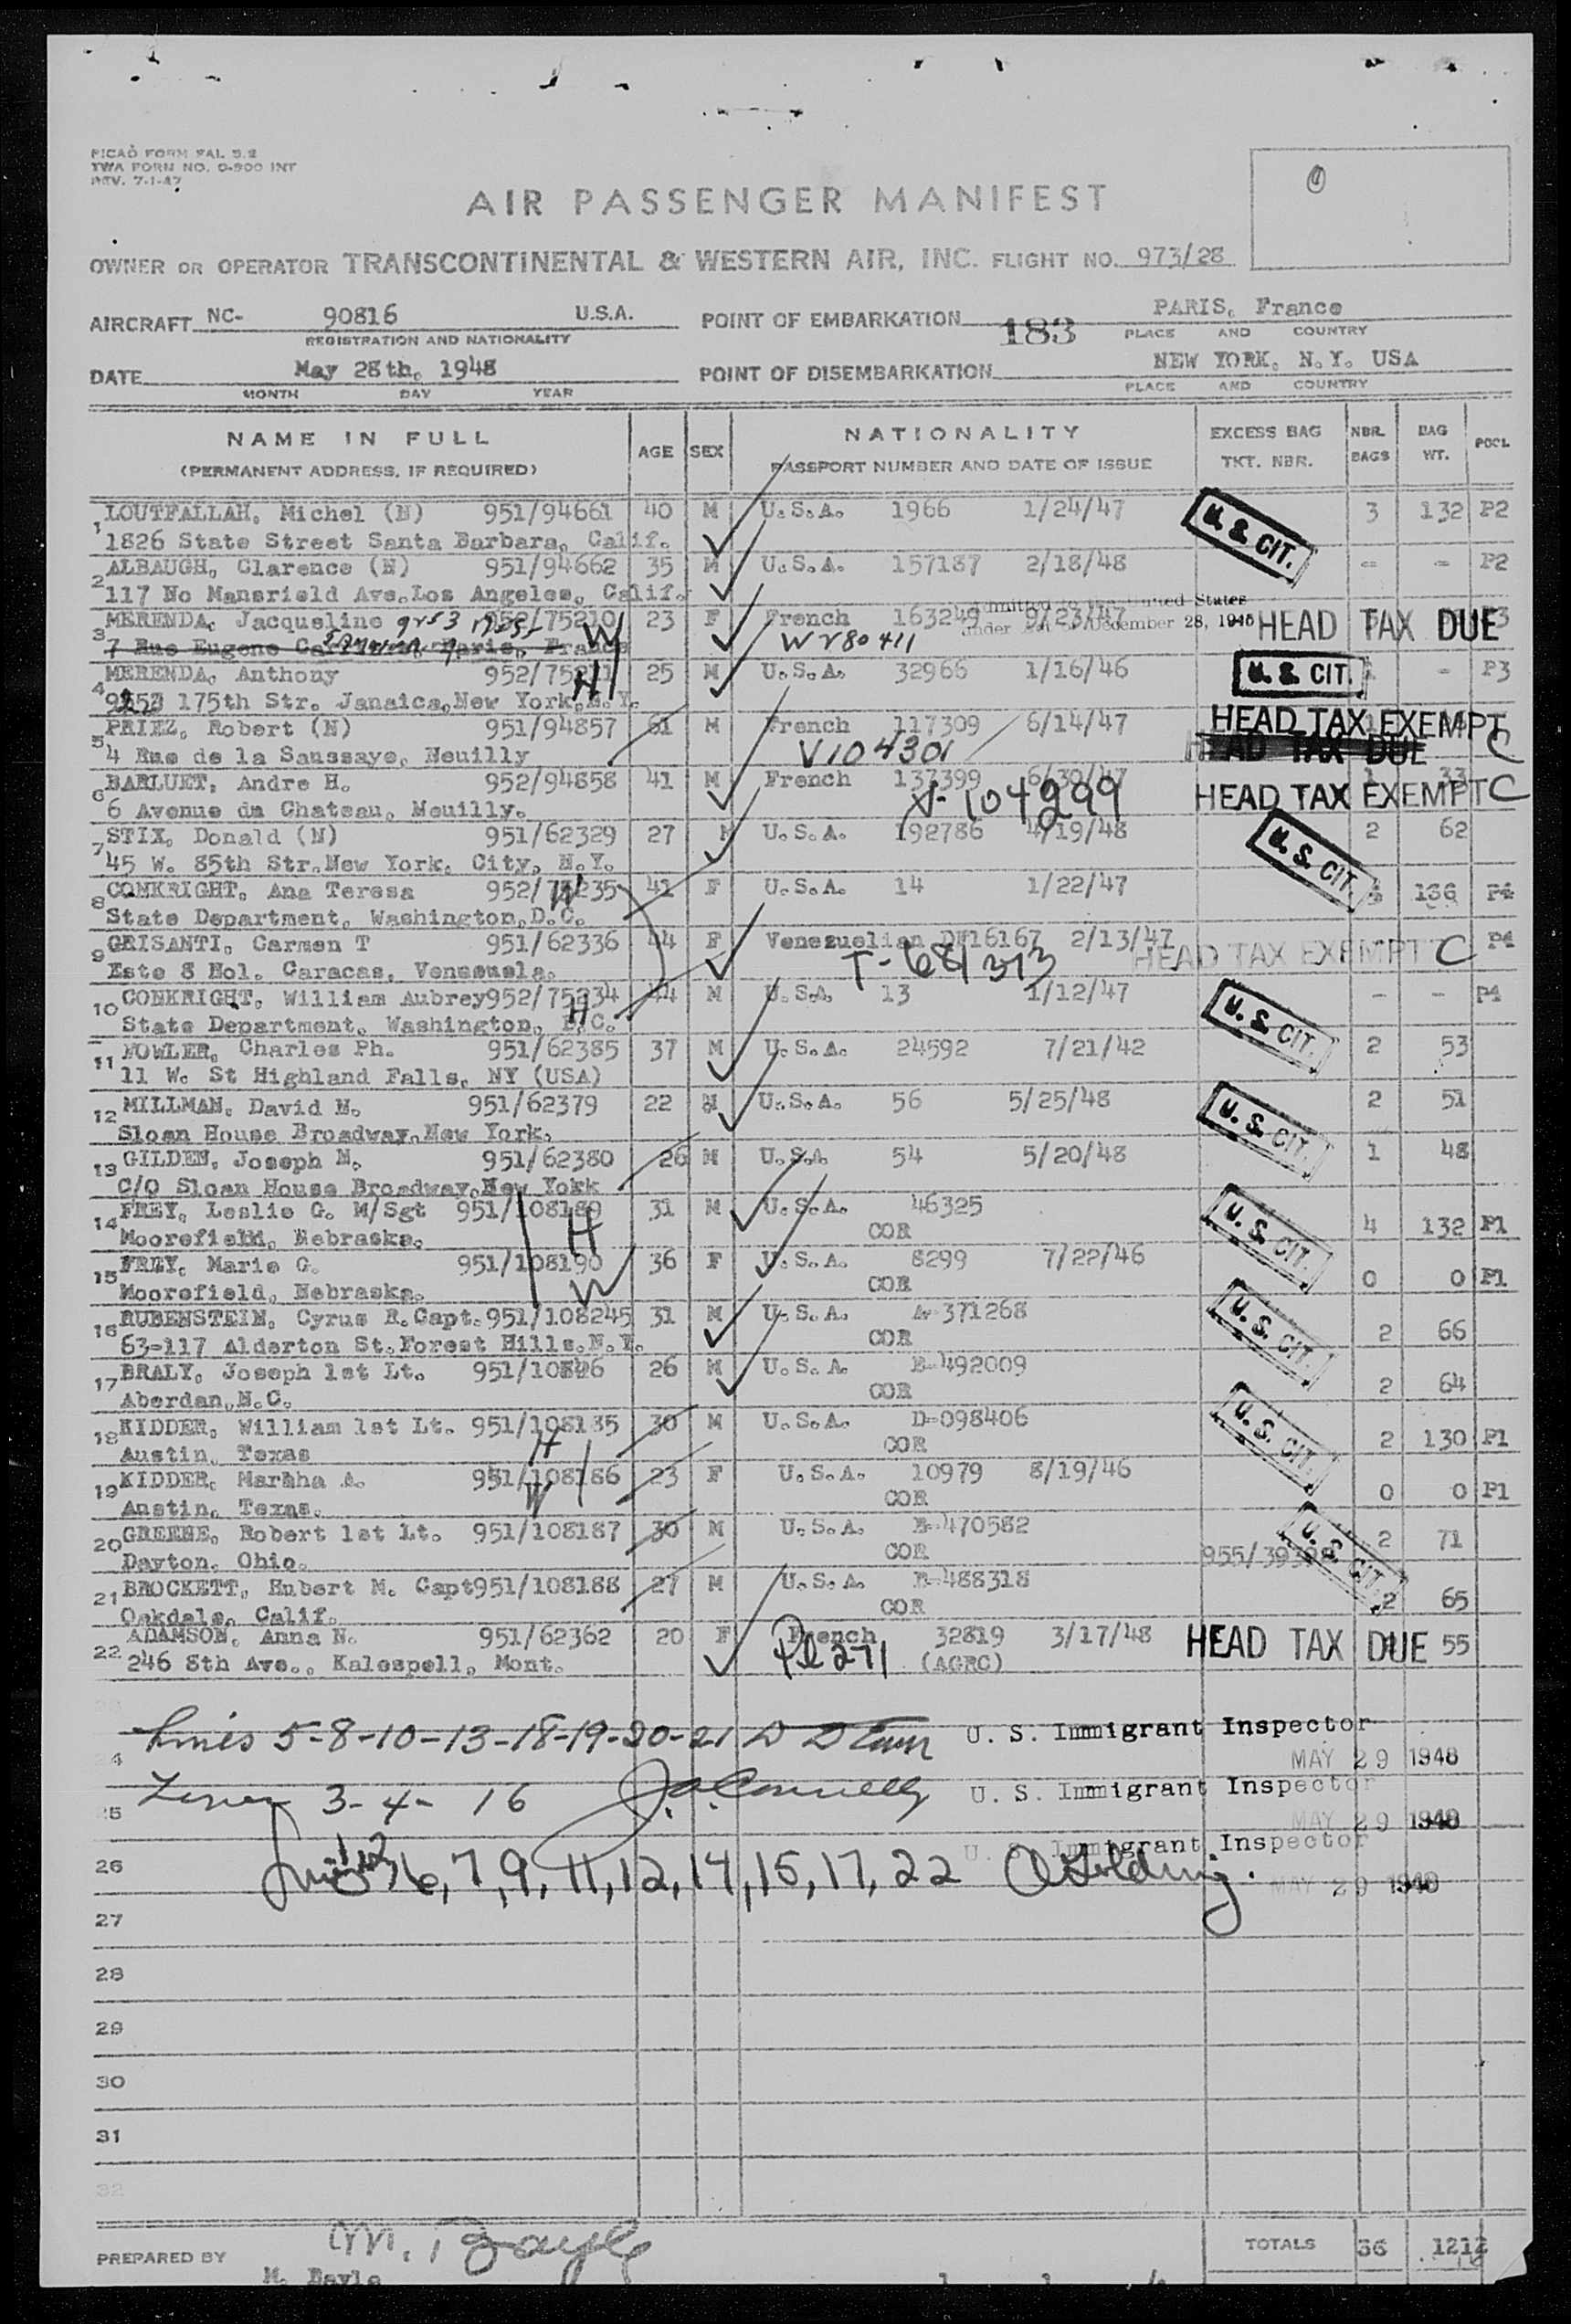 PICAO FORM FAL 5.2
TWA FORM NO. O-900 INT
REV. 7-1-47
AIR PASSENGER MANIFEST
OWNER OR OPERATOR TRANSCONTINENTAL & WESTERN AIR, INC. FLIGHT NO. 973/28
AIRCRAFT NC- 90816 U.S.A. POINT OF EMBARKATION 183 PARIS, France
REGISTRATION AND NATIONALITY PLACE AND COUNTRY
DATE May 28th, 1948 POINT OF DISEMBARKATION NEW YORK, N.Y. USA
MONTH DAY YEAR PLACE AND COUNTRY
NAME IN FULL AGE SEX NATIONALITY EXCESS BAG NBR. BAG POCL
(PERMANENT ADDRESS, IF REQUIRED) PASSPORT NUMBER AND DATE OF ISSUE TKT. NBR. BAGS WT.
LOUTFALLAH, Michel (N) 951/94661 40 M U.S.A. 1966 1/24/47 U. S. CIT. 3 132 P2
1 1826 State Street Santa Barbara, Calif.
ALBAUGH, Clarence (N) 951/94662 35 M U.S.A. 157187 2/18/48 - - P2
2 117 No Mansrield Ave.Los Angeles, Calif.
MERENDA, Jacqueline 952/75210 W 23 F French 163249 9/23/47 United States
3 7 Rue Eugene Paris, France under December 28, 1945 HEAD TAX DUE
MERENDA, Anthony 952/75211 H 25 M U.S.A. 32966 1/16/46 U. S. CIT. 1 - P3
4 175th Str. Jamaica,New York,N.Y.
PRIEZ, Robert (N) 951/94857 61 M French 117309 6/14/47 HEAD TAX EXEMPT C
5 4 Rue de la Saussaye, Neuilly V104301 HEAD TAX DUE
BARLUET, Andre H. 952/94858 41 M French 137399 6/30/47 1 33
6 6 Avenue du Chateau, Neuilly. V-104299 HEAD TAX EXEMPT C
STIX, Donald (N) 951/62329 27 M U.S.A. 192786 4/19/48 U. S. CIT. 2 62
7 45 W. 85th Str.New York, City, N.Y.
CONKRIGHT, Ana Teresa 952/75235 W 41 F U.S.A. 14 1/22/47 136 P4
8 State Department, Washington,D.C.
GRISANTI, Carmen T 951/62336 44 F Venezuelian D#16167 2/13/47 HEAD TAX EXEMPT C P4
9 Este 8 Nol. Caracas, Venezuela. T-681373
CONKRIGHT, William Aubrey 952/75234 H 44 M U.S.A. 13 1/12/47 U. S. CIT. - - P4
10 State Department, Washington, D.C.
FOWLER, Charles Ph. 951/62385 37 M U.S.A. 24592 7/21/42 2 53
11 11 W. St Highland Falls, NY (USA)
MILLMAN, David N. 951/62379 22 M U.S.A. 56 5/25/48 U. S. CIT. 2 51
12 Sloan House Broadway,New York.
GILDEN, Joseph N. 951/62380 26 M U.S.A 54 5/20/48 1 48
13 C/O Sloan House Broadway,New Yokk
FREY, Leslie G. M/Sgt 951/108189 H 31 M U.S.A. 46325 U. S. CIT. 4 132 P1
14 Moorefield, Nebraska. COR
FREY, Marie G. 951/108190 W 36 F U.S.A. 8299 7/22/46 0 0 P1
15 Moorefield, Nebraska. COR
RUBENSTEIN, Cyrus R.Capt. 951/108245 31 M U.S.A. A-371268 U. S. CIT. 2 66
16 63-117 Alderton St.Forest Hills.N.Y. COR
BRALY, Joseph 1st Lt. 951/10846 26 M U.S.A. B-492009 2 64
17 Aberdan,N.C. COR
KIDDER, William 1st Lt. 951/108185 H 30 M U.S.A. D-098406 U. S. CIT. 2 130 P1
18 Austin, Texas COR
KIDDER, Martha A. 951/108186 W 23 F U.S.A. 10979 8/19/46 0 0 P1
19 Austin, Texas. COR
GREENE, Robert 1st Lt. 951/108187 30 M U.S.A. B-470582 U. S. CIT. 2 71
20 Dayton, Ohio. COR
BROCKETT, Hubert M. Capt 951/108188 27 M U.S.A. B-488318 2 65
21 Oakdale, Calif. COR
ADAMSON, Anna N. 951/62362 20 F French 32819 3/17/48 HEAD TAX DUE 55
22 246 8th Ave., Kalespell, Mont. (AGRC)
Lines 5-8-10-13-18-19-20-21 U. S. Immigrant Inspector
24 MAY 29 1948
3-4- 16 U. S. Immigrant Inspector
25 MAY 29 1948
U. S. Immigrant Inspector
26 6, 7, 9, 11, 12, 14, 15, 17, 22 MAY 29 1948
27
28
29
30
31
32
PREPARED BY M. Bayle TOTALS 36 1212
M. Bayle